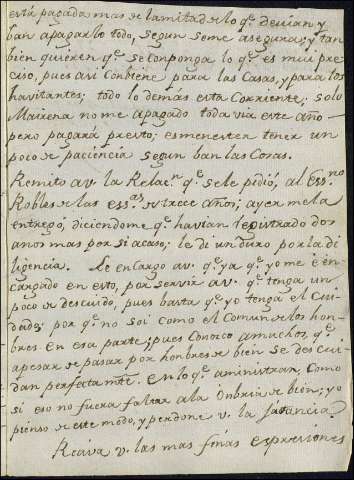 está pagada mas de la mitad de lo qe. devian y
ban apagarlo todo, segun seme asegura; y tan
bien quieren qe. se Componga lo qe. es mui pre
ciso, pues asi Conbiene para las Casas, y para los
havitantes; todo lo demás esta Corriente; solo
Mairena no me apagado toda via este año
pero pagará presto; es menester tener un
poco de paciencia segun ban las Cosas.
Remito a v. la Relacn. qe. sele pidió, al Essno
Robles de las essas. de trece años; ayer mela
entregó, diciendome qe. havian rejistrado dos
anos mas por si acaso; le di un duro por la di
ligencia. Le encargo av. qe. ya qe. yo me è en
cargado en esto, por servir av. qe. tenga un
poco de descuido, pues basta qe. yo tenga el Cui
dado; por qe. no soi como el Comun de los hon
bres en esa parte; pues Conosco amuchos, qe.
apesar de pasar por honbres de bien se descui
dan perfectamte. en lo qe. aministran, como
si eso no fuera faltar ala Onbria de bien; yo
pienso de este modo, y perdone v. la Jatancia.
Reciva v. las mas finas expresiones